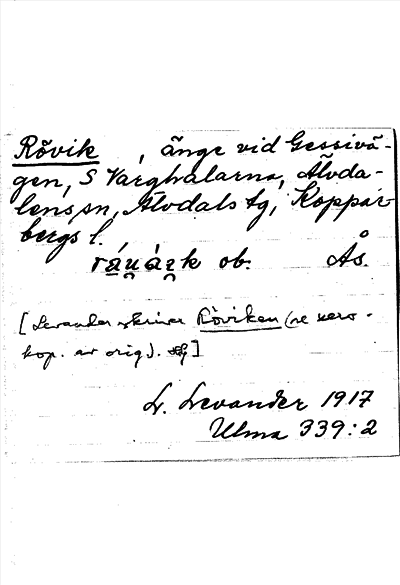 Rövik, änge vid Gessivä-
gen, S Varghalarna, Älvda-
lens sn, Älvdals tg, Koppar-
bergs l.
ob. Ås.
[Levander skriver Röviken (se xero-
kop. av orig.). ]
L. Levander 1917
Ulma 339:2